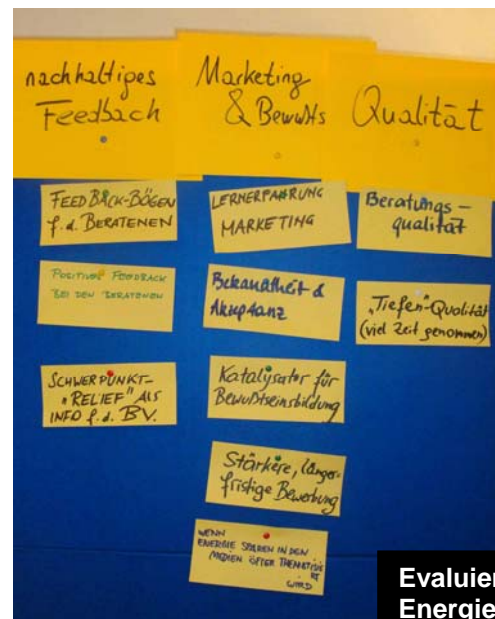 nachhaltiges
Feedbach
FEEDBACK-BÖGEN
f. d. BERATENEN
POSITIVES FEEDBACK
BEI DEN BERATENEN
SCHWERPUNKT-
„RELIEF" ALS
INFO f. d. BV.
Marketing
& Bewußts
LERNERFAHRUNG
MARKETING
Bekanntheit &
Akzeptanz
Katalysator für
Bewußtseinsbildung
Stärkere, länger-
fristige Bewerbung
WENN
ENERGIE SPAREN IN DEN
MEDIEN ÖFTER THEMATISIE
RT
WIRD
Qualität
Beratungs-
qualität
„Tiefen"-Qualität
(viel Zeit genommen)
Evaluier
Energie